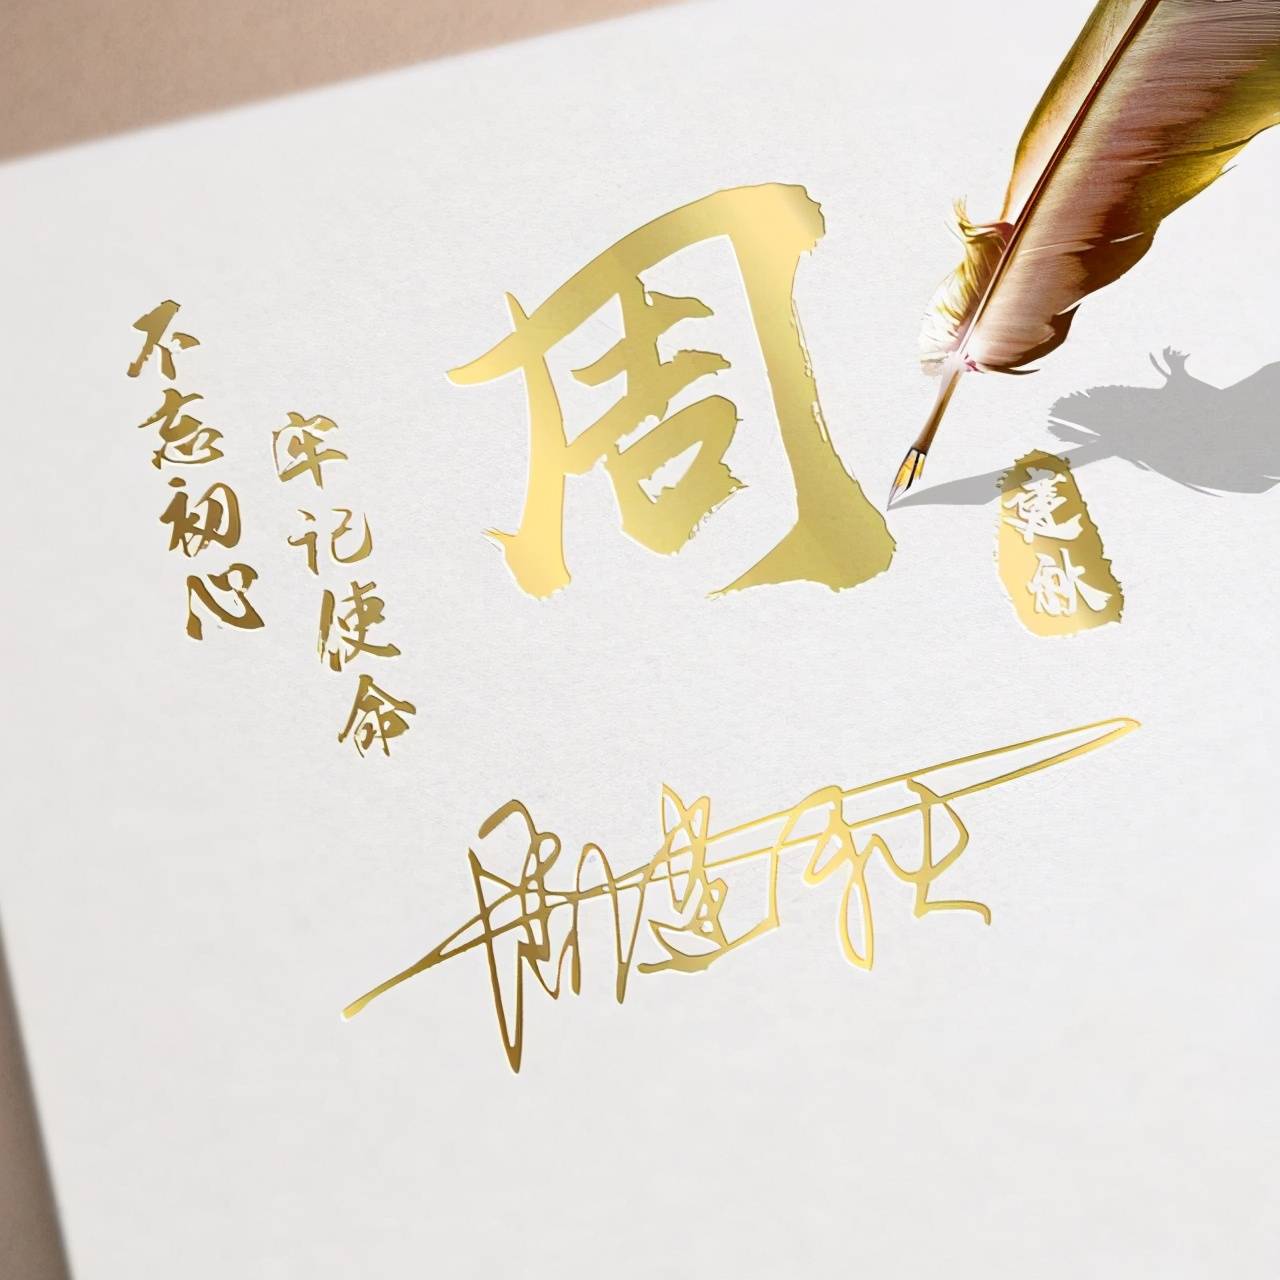 不忘初心
牢记使命
周